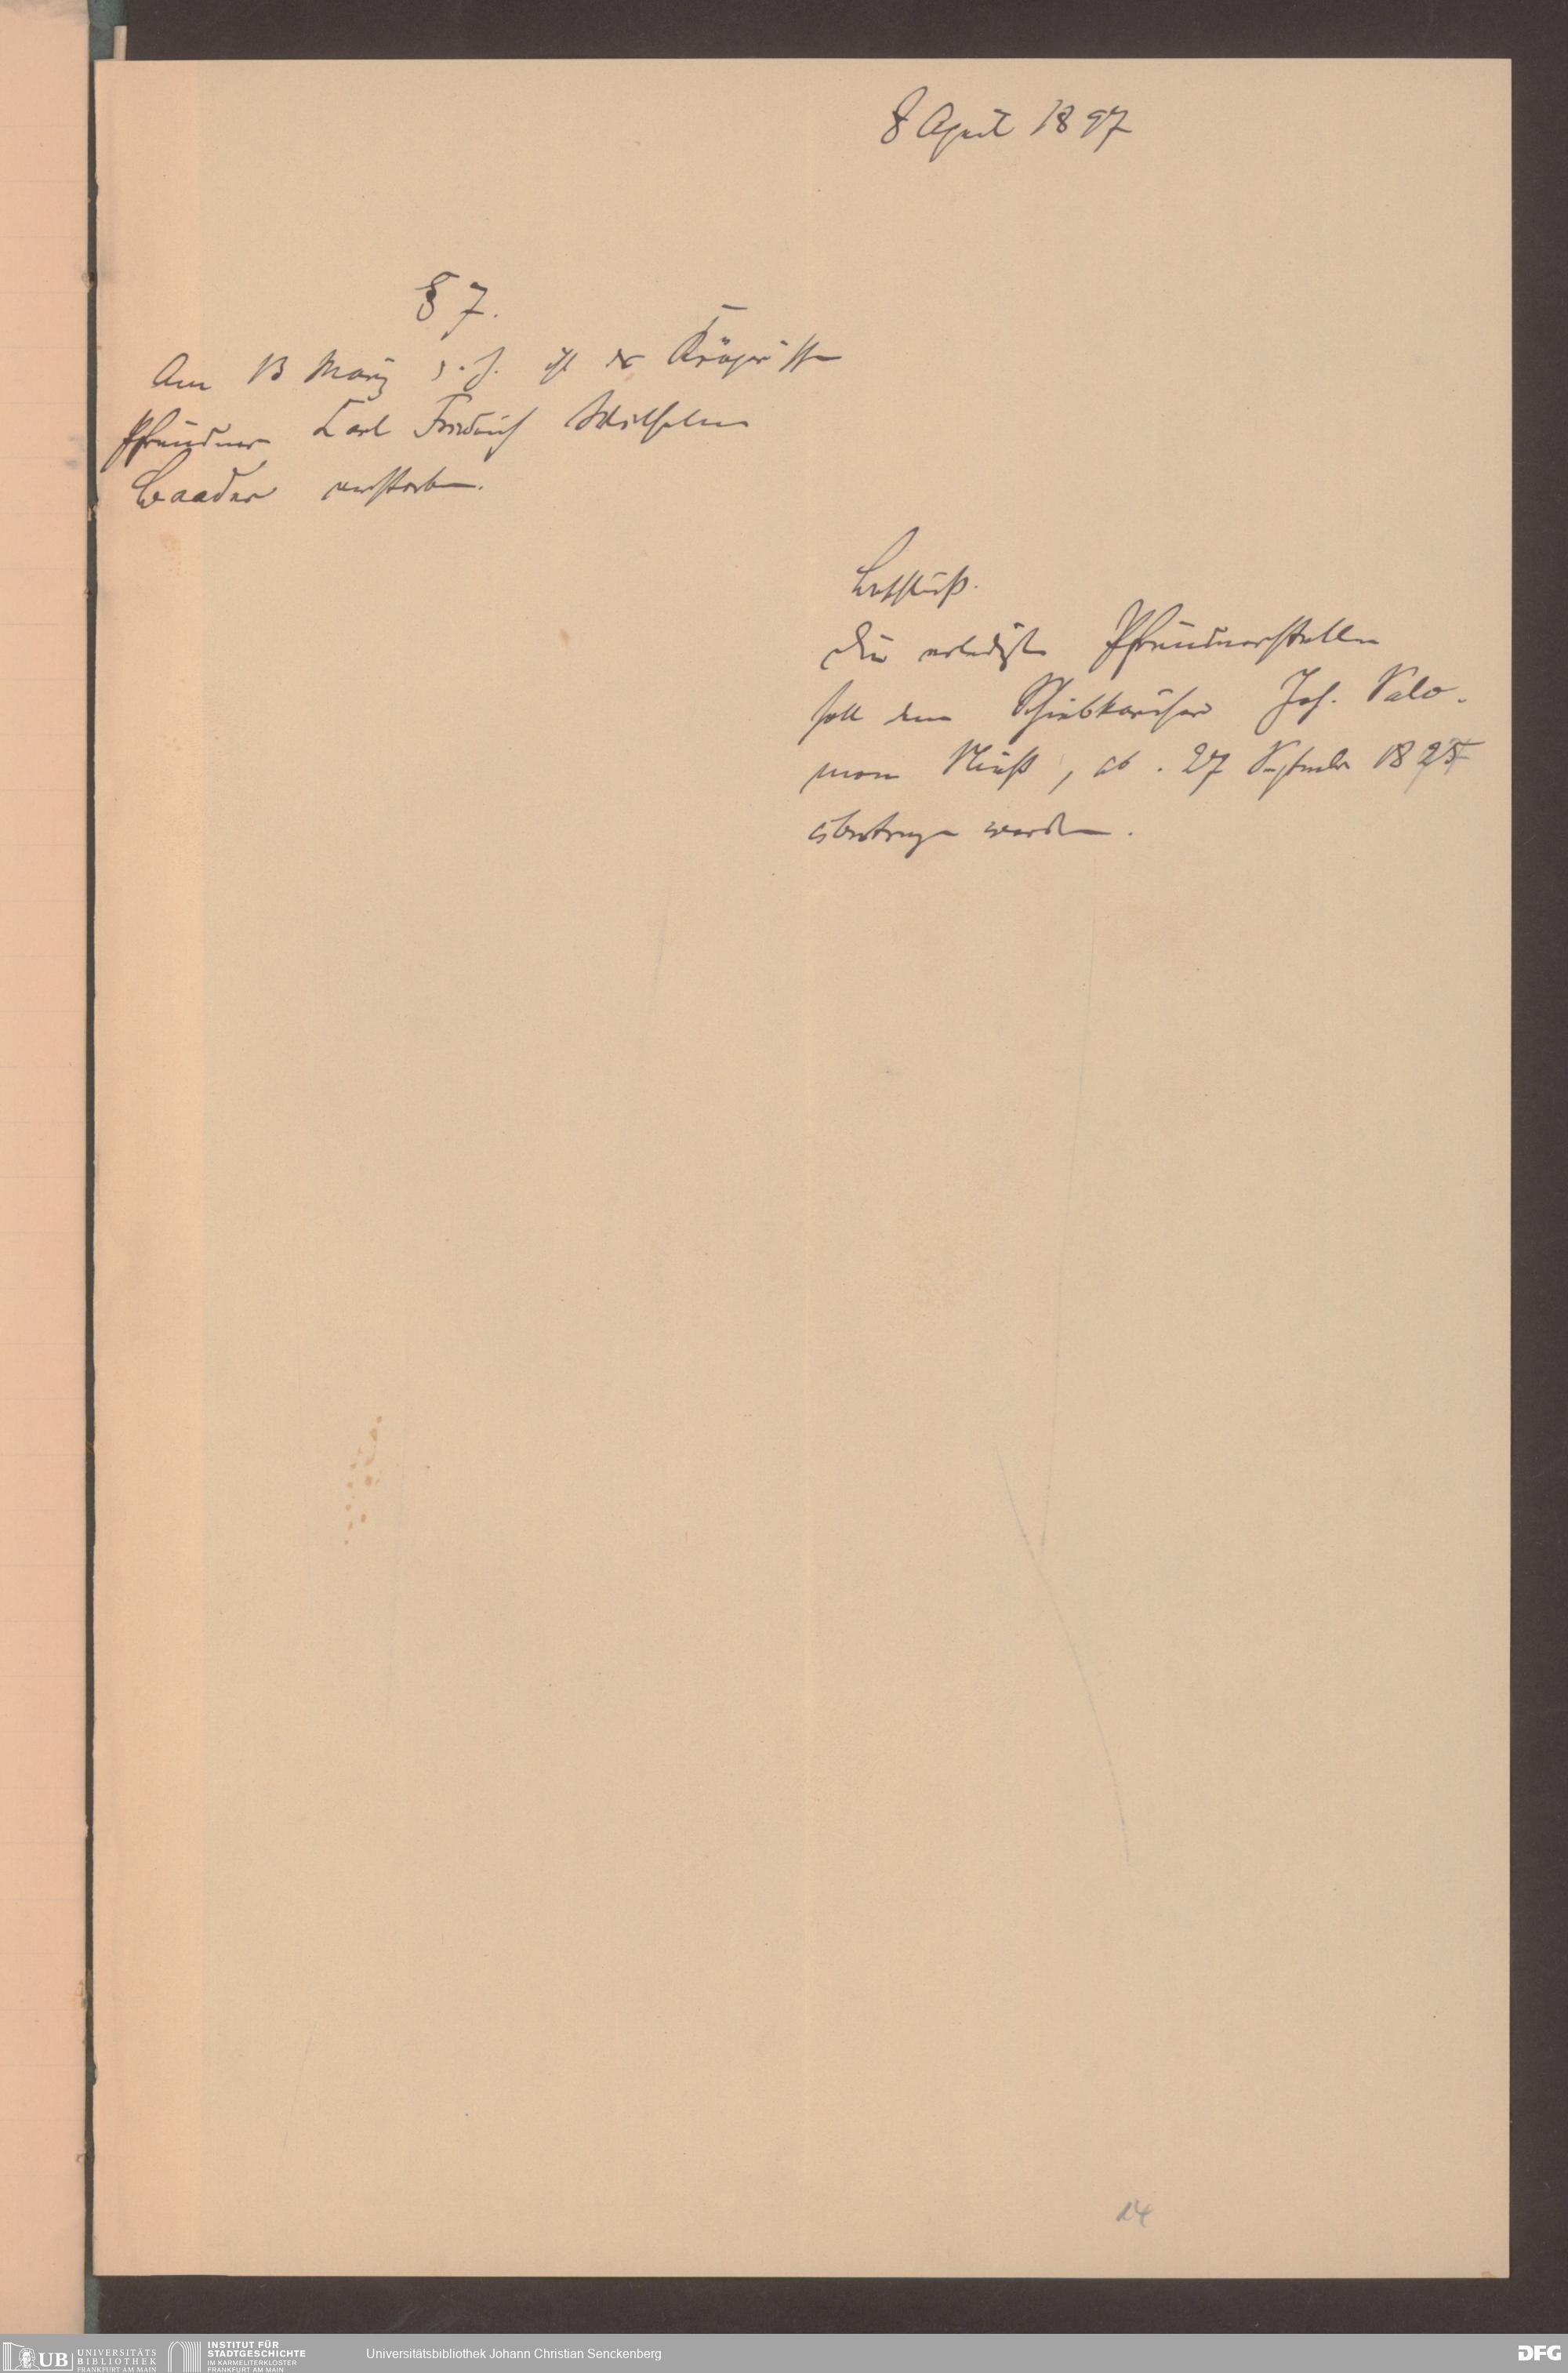 8 April 1897
§ 7.
Am 13 März d. J. ist der
Pfründner Carl Friedrich Wilhelm
Baader verstorben.
Beschluß.
Die erledigte Pfründnerstelle
soll dem Joh. Salo-
mon , geb. 27 September 1825
übertragen werden.
14
UB UNIVERSITÄTS BIBLIOTHEK FRANKFURT AM MAIN
INSTITUT FÜR STADTGESCHICHTE IM KARMELITERKLOSTER FRANKFURT AM MAIN
Universitätsbibliothek Johann Christian Senckenberg
DFG